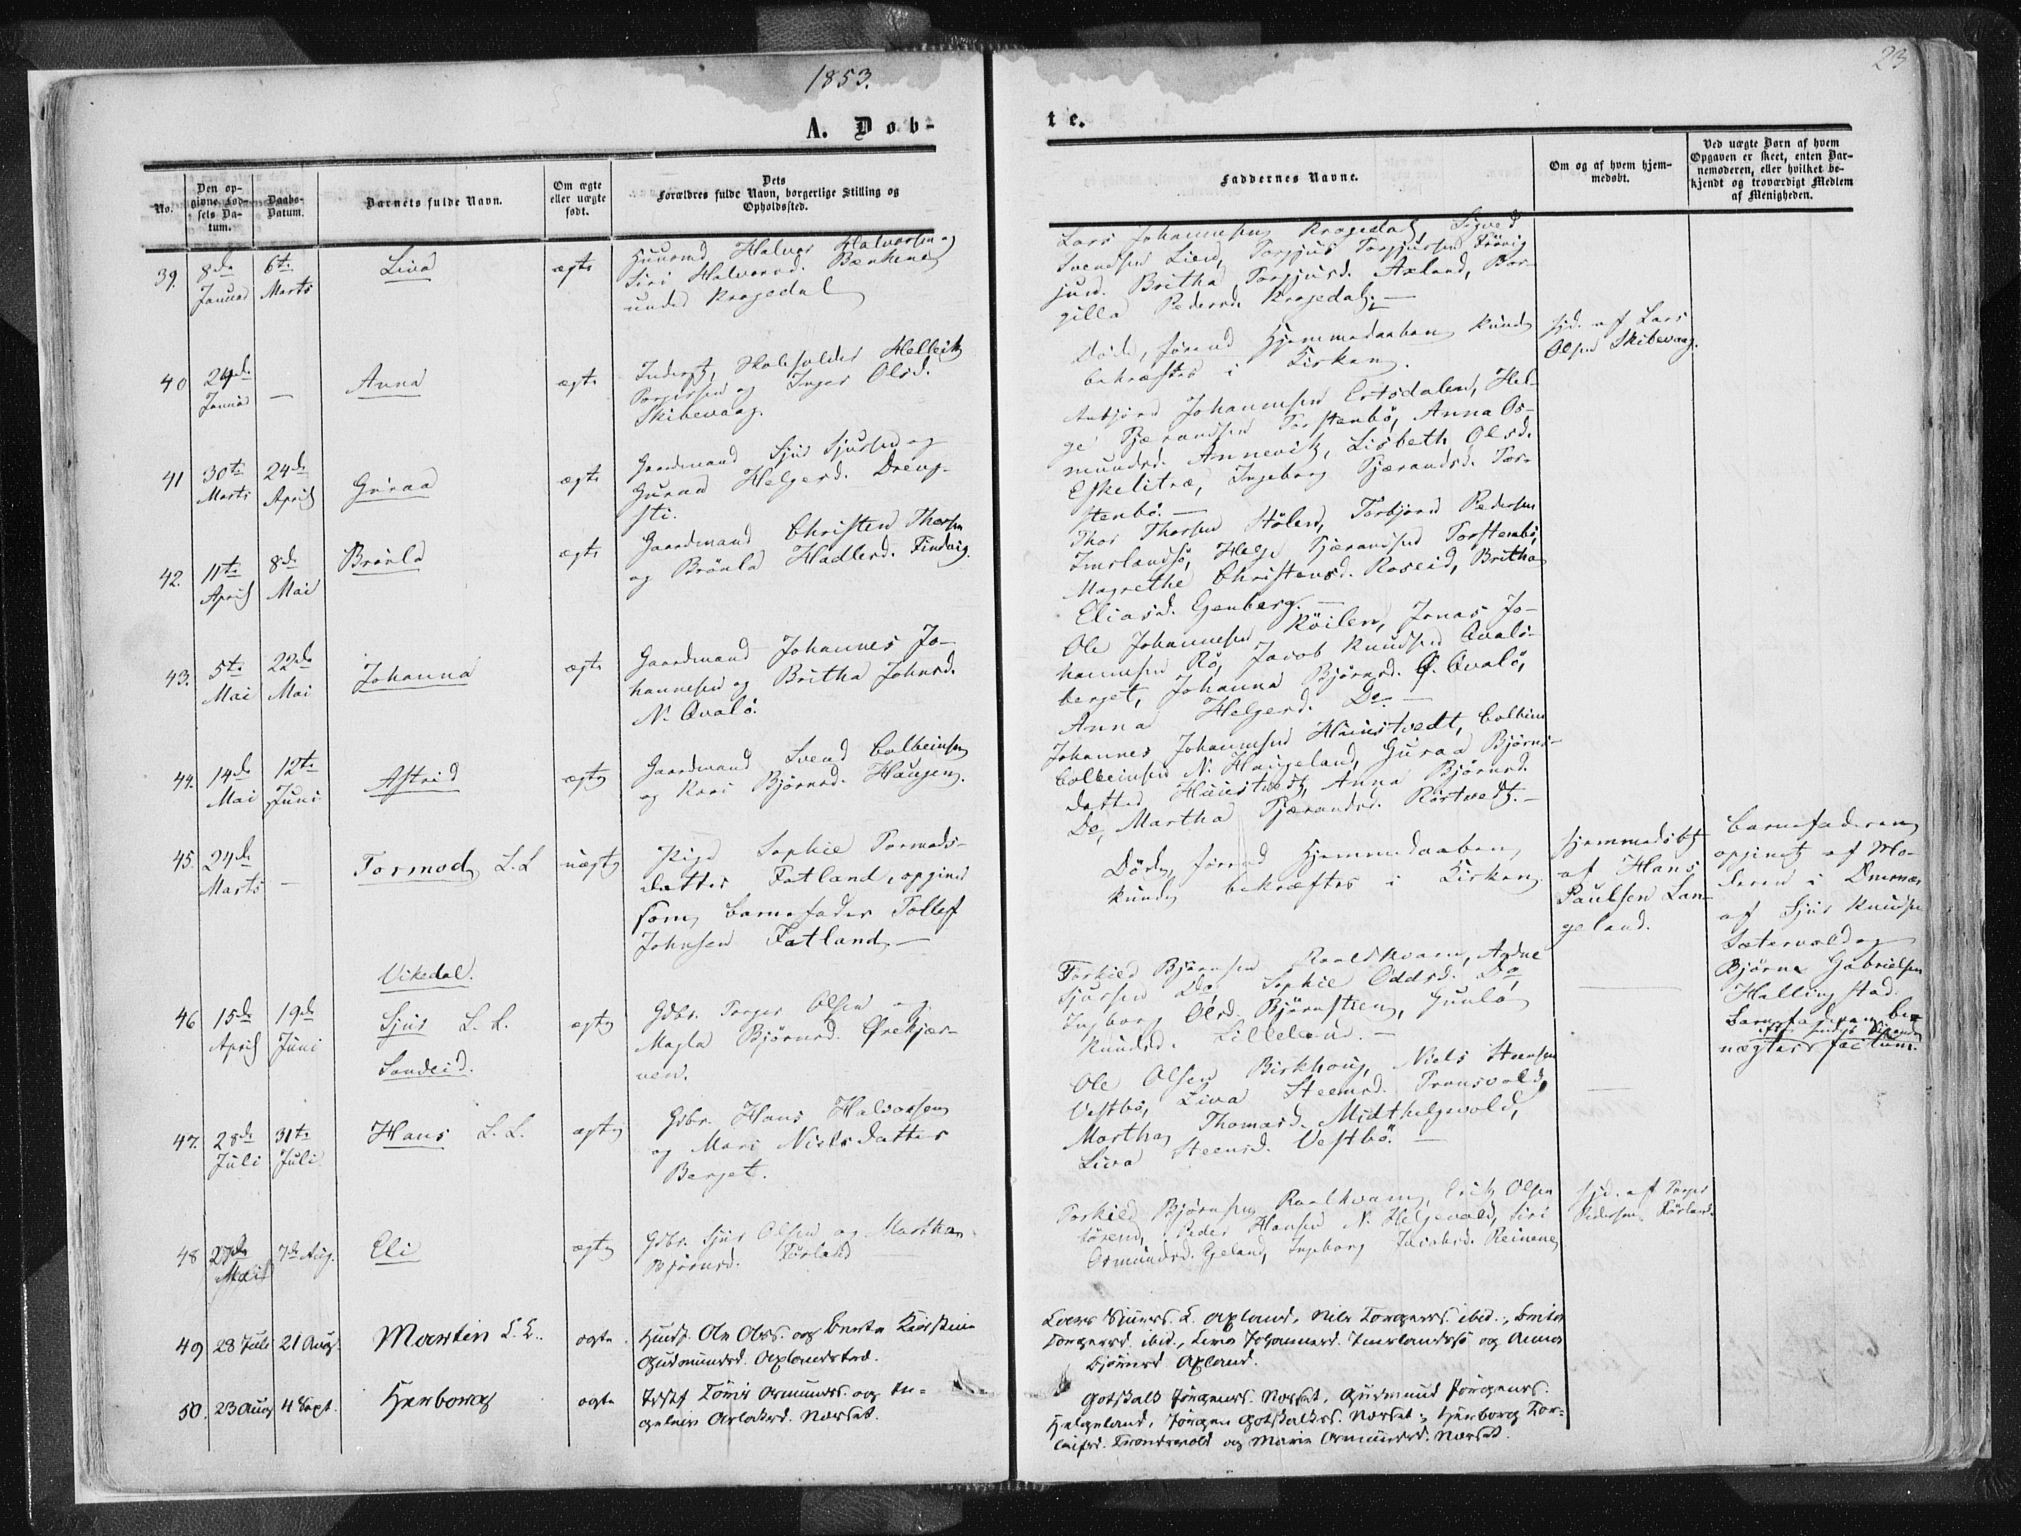 1853.
23
A. Dob-
te.
No.
Den op-
givne Fød-
sels Da-
tum.
Daabs-
Datum.
Barnets fulde Navn.
Om ægte
eller uægte
født.
Dets
Forældres fulde Navn, borgerlige Stilling og
Opholdssted.
Faddernes Navne.
Om og af hvem hjem-
medøbt.
Ved uægte Børn af hvem
Opgaven er skeet, enten Bar-
nemoderen, eller hvilket be-
kjendt og troværdigt Medlem
af Menigheden.
39. 8de Januar
6te Marts
Liva
ægte
Huusmd Halvor Halvorsen og
Siri Halvorsd. Bækkene
under Krogedal
Lars Johannesen Krogedal, Sigved
Svendsen Lien, Torgjus Torgjussen
Britha Torgjusd. Axland, Bor-
gilla Pedersd. Krogedal. —
40 24de Januar
—
Anna
ægte
Inderst, Skoleholder Helleik
Torgersen og Inger Olsd.
Skibevaag.
Døde, førend Hjemmedaaben kunde
bekræftes i Kirken
hjd. af Lars
Olsen Skibevaag.
41 30te Marts
24de April
Guraa
ægte
Gaardmand Sjur Sjursen og
Guraa Helgesd. Dreng-
sti.
Anbjørn Johannesen Ertsdalen, Hel-
ge Tjerandsen Torstenbø, Anna Os-
mundsd. Annevik, Lisbeth Olsd.
Eskelitræ, Ingeborg Tjærandsd. Tor-
stenbø. —
42. 11te April
8de Mai
Brønla
ægte
Gaardmand Christen Thorsen
og Brønla Hadlesd. Findvig
Thor Thorsen Stølen, Torbjørn Pedersen
Imslandsø, Helge Tjærandsen Torstenbø,
Magrethe Christensd. Roseid, Britha
Eliasd. Gjenberg. —
43. 5te Mai
22de Mai
Johanna
ægte
Gaardmand Johannes Jo-
hannesen og Britha Johnsd.
N. Qvalø.
Ole Johannesen Røilen, Jonas Jo-
hannesen Rø, Jacob Knudsen Qvalø-
berget, Johanna Bjørnsd. Ø. Qvalø,
Anna Helgesd. Do. —
44. 14de Mai
12te Juni
Astrid
ægte
Gaardmand Svend Colbeinsen
og Kari Bjørnsd. Haugen.
Johannes Johannesen Hunstvedt, Colbein
Colbeinsen N. Haugeland, Guraa Bjørns-
datter Hunstvedt, Anna Bjørnsd.
Do, Martha Tjærandsd. Rørtvedt. —
45. 24de Marts
—
Tormod L. L
uægte
Pige Sophie Tormods-
datter Fatland, opgivet
som Barnefader Tollef
Johnsen Fatland. —
Døde, førend Hjemmedaaben
kunde bekræftes i Kirken
Hjemmedøbt
af Hans
Paulsen Lan-
geland.
Barnefaderen
opgivet af Mo-
deren i Overvær
af Sjur Knudsen
Sætervold og
Bjørn Gabrielsen
Hallingstad.
Barnefaderen be-
nægter factum.
Vikedal.
46 15de April
19de Juni
Sjur L. L.
ægte
Gdbr. Torger Olsen og
Magla Bjørnsd. Ørekjær-
nen.
Torkild Bjørnsen Roaldkvam, Aadne
Sjursen Do, Sophie Oddsd. Do,
Ingborg Olsd. Bjørnstien, Gunla
Knudsd. Lilleland. —
Sandeid.
47. 28de Juli
31te Juli
Hans L. L.
ægte
Gdbr. Hans Halvorsen
og Mari Nielsdatter
Berget.
Ole Olsen Birkhoug, Niels Steensen
Vestbø, Liva Steensd. Tronsvold,
Martha Thomasd. Midthelgevold,
Liva Steensd. Vestbø. —
48 27de
7de Aug.
Eli
ægte
Gdbr. Sjur Olsen og Martha
Bjørnsd. Tørland
Torkild Bjørnsen Roalkvam, Erik Olsen
Peder Hansen N. Helgevold, Siri
Osmundsd. Egeland, Ingeborg Jacobsd. Reinene
hjd. af Torger
Pedersen Tørland.
49 28 Juli
21 Aug.
Martin L. L.
ægte.
Husf. Ole Olss. og Berta Kirstine
Gudmundsd. Øxlandstrd.
Lars Sjurss. L. Øxland, Nils Torgerss. ibid.,
Torgersd. ibid., Liva Johannesd. Imslandssø og Anna
Bjørnsd Øxland.
50. 23 Aug
4 Sept.
Herborg
ægte
Tønis Osmunds. og In-
geleiv Aslaksd. Nærset.
Gotskalk Jørgenss. Nærset, Gudmund Jørgenss.
Helgeland, Jørgen Gotskalkss. Nærset, Herborg Tor-
leifsd. Trondsvold og Marie Osmundsd. Nærset.